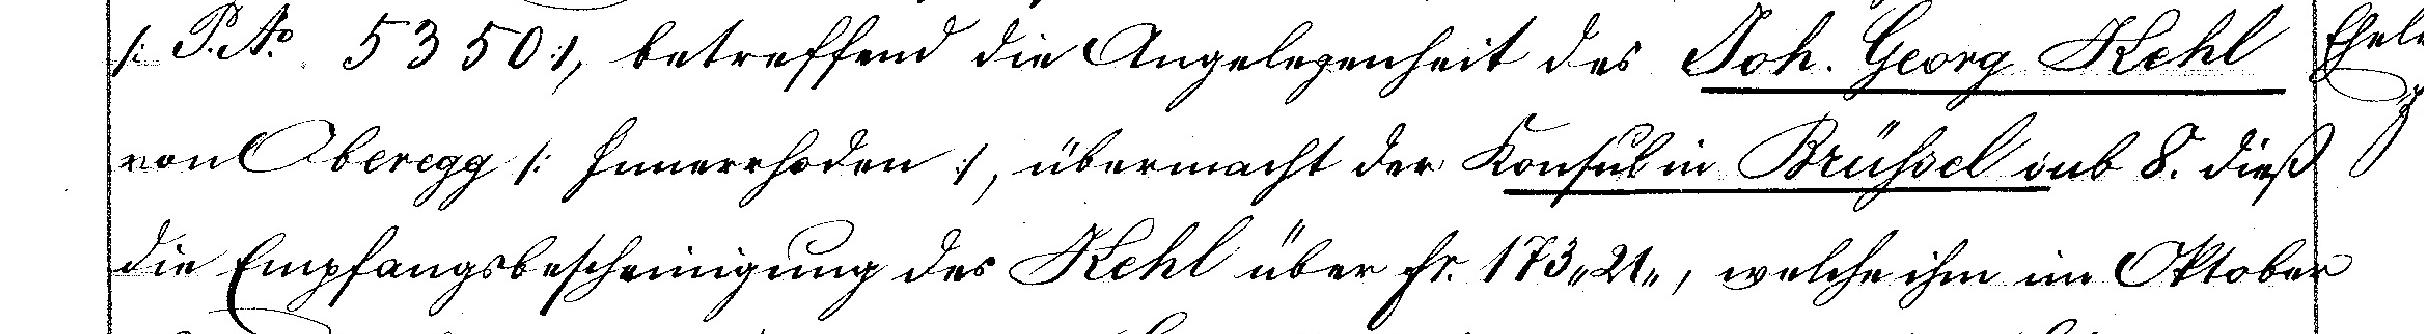 /: P. No 5350 :/, betreffend die Angelegenheit des Joh. Georg Kehl
von Oberegg /: Innerrhoden :/, übermacht der Konsul in Brüssel sub 8. dieß
die Empfangsbescheinigung des Kehl über fr. 173 „ 21 „, welche ihm im Oktober